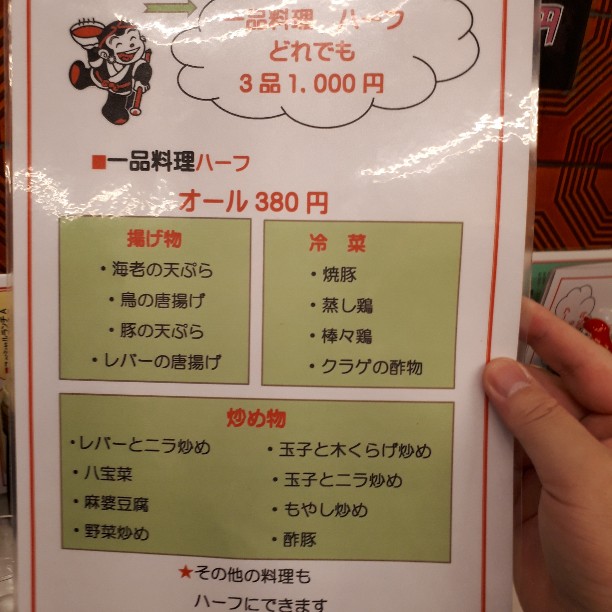 一品料理 ハーフ
どれでも
3品1,000円
■一品料理ハーフ
オール 380 円
揚げ物
・海老の天ぷら
・鳥の唐揚げ
・豚の天ぷら
・レバーの唐揚げ
冷 菜
・焼豚
・蒸し鶏
・棒々鶏
・クラゲの酢物
炒め物
・レバーとニラ炒め
・八宝菜
・麻婆豆腐
・野菜炒め
・玉子と木くらげ炒め
・玉子とニラ炒め
・もやし炒め
・酢豚
★その他の料理も
ハーフにできます
円